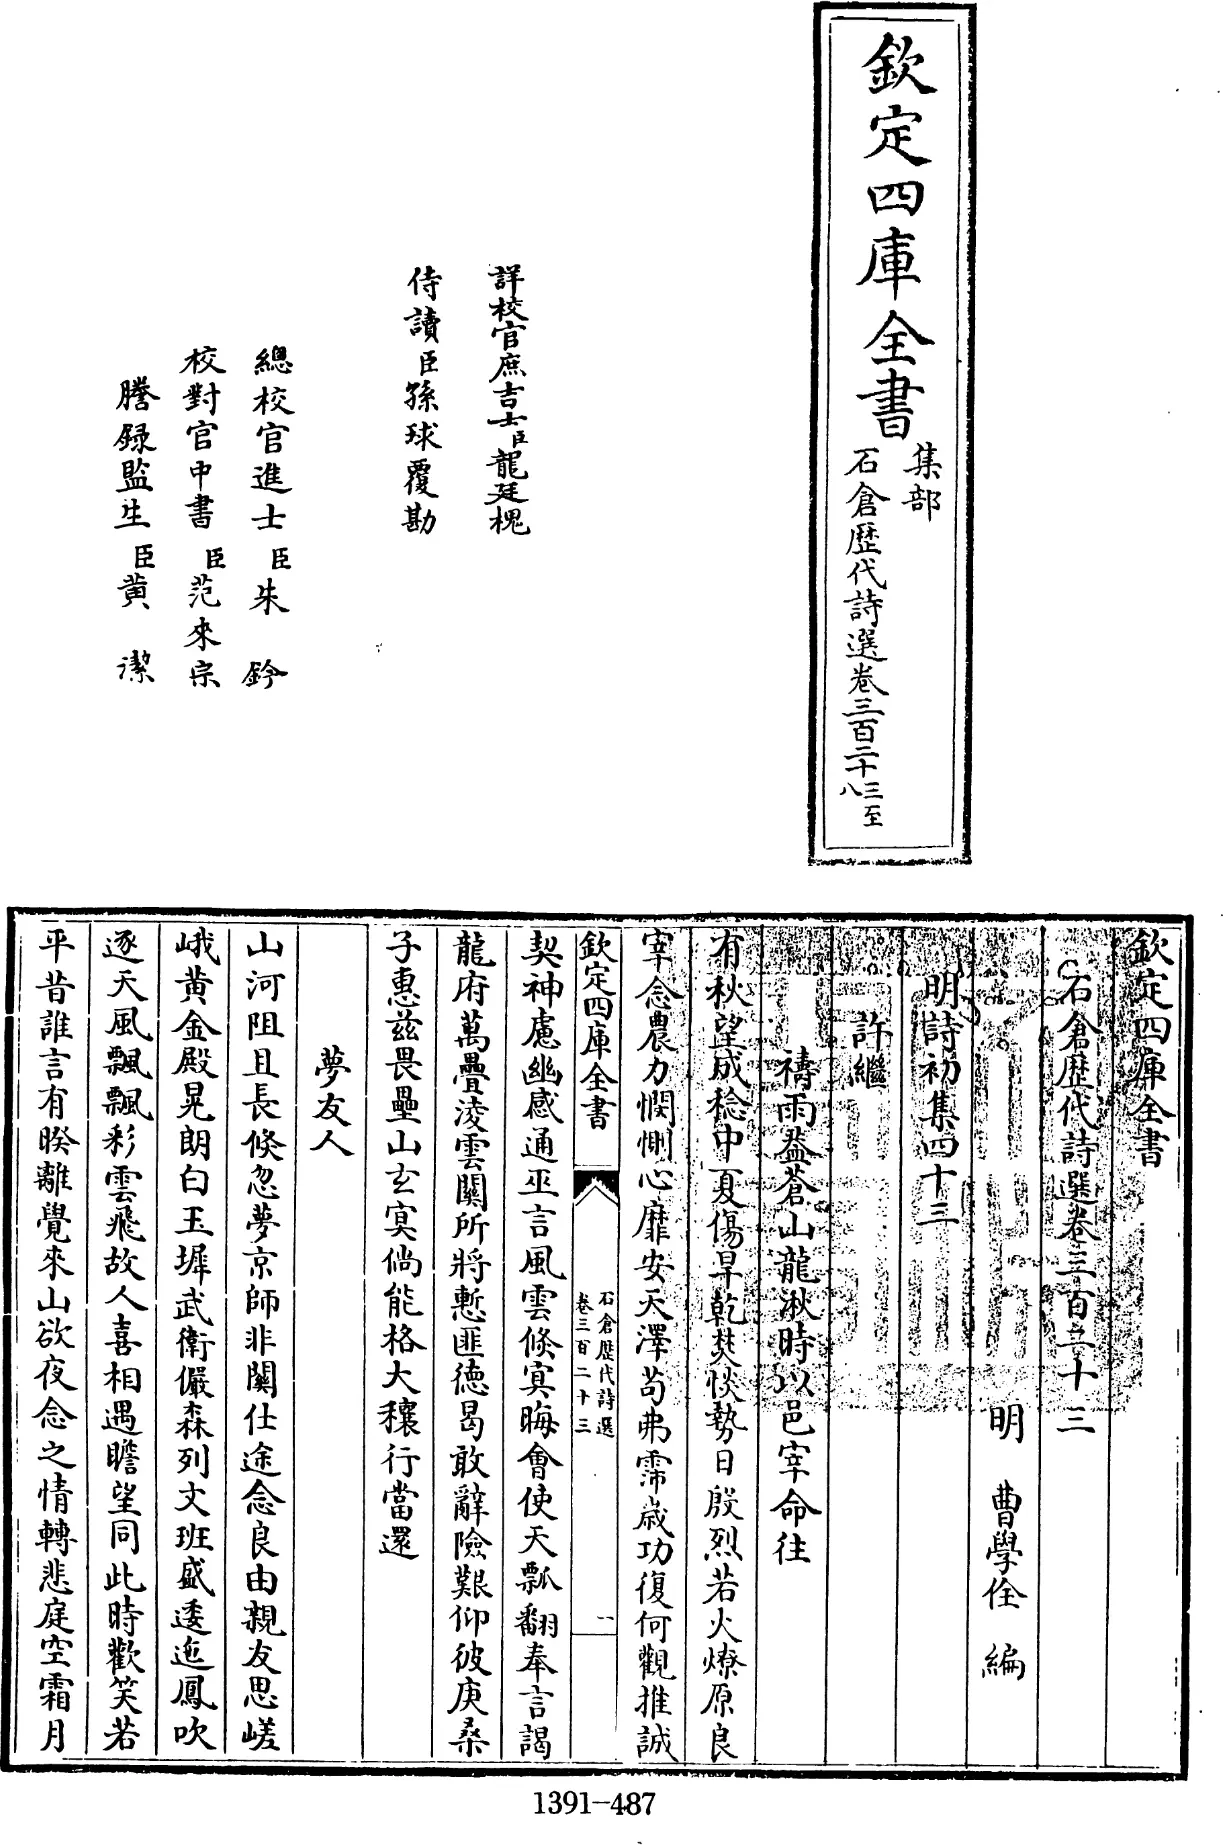 欽定四庫全書
集部
石倉歷代詩選卷三百二十三至
八
詳校官庶吉士臣龍廷槐
侍讀臣孫球覆勘
總校官進士臣朱鈐
校對官中書臣范來宗
謄錄監生臣黃潔
欽定四庫全書
石倉歷代詩選卷三百二十三
明 曹學佺 編
明詩初集四十三
許繼
禱雨益蒼山龍湫時以邑宰命往
有秋望成稔中夏傷旱乾焚惔勢日殷烈若火燎原良
宰念農力憫惻心靡安天澤苟弗霈歲功復何觀推誠
欽定四庫全書
石倉歷代詩選
卷三百二十三
一
契神慮幽感通巫言風雲倏冥晦會使天瓢翻奉言謁
龍府萬疊淩雲關所將慙匪德曷敢辭險艱仰彼庚桑
子惠茲畏壘山玄冥倘能格大穰行當還
夢友人
山河阻且長倏忽夢京師非關仕途念良由親友思嵯
峨黃金殿晃朗白玉墀武衛儼森列文班盛逶迤鳳吹
逐天風飄飄彩雲飛故人喜相遇瞻望同此時歡笑若
平昔誰言有暌離覺來山欲夜念之情轉悲庭空霜月
1391-487